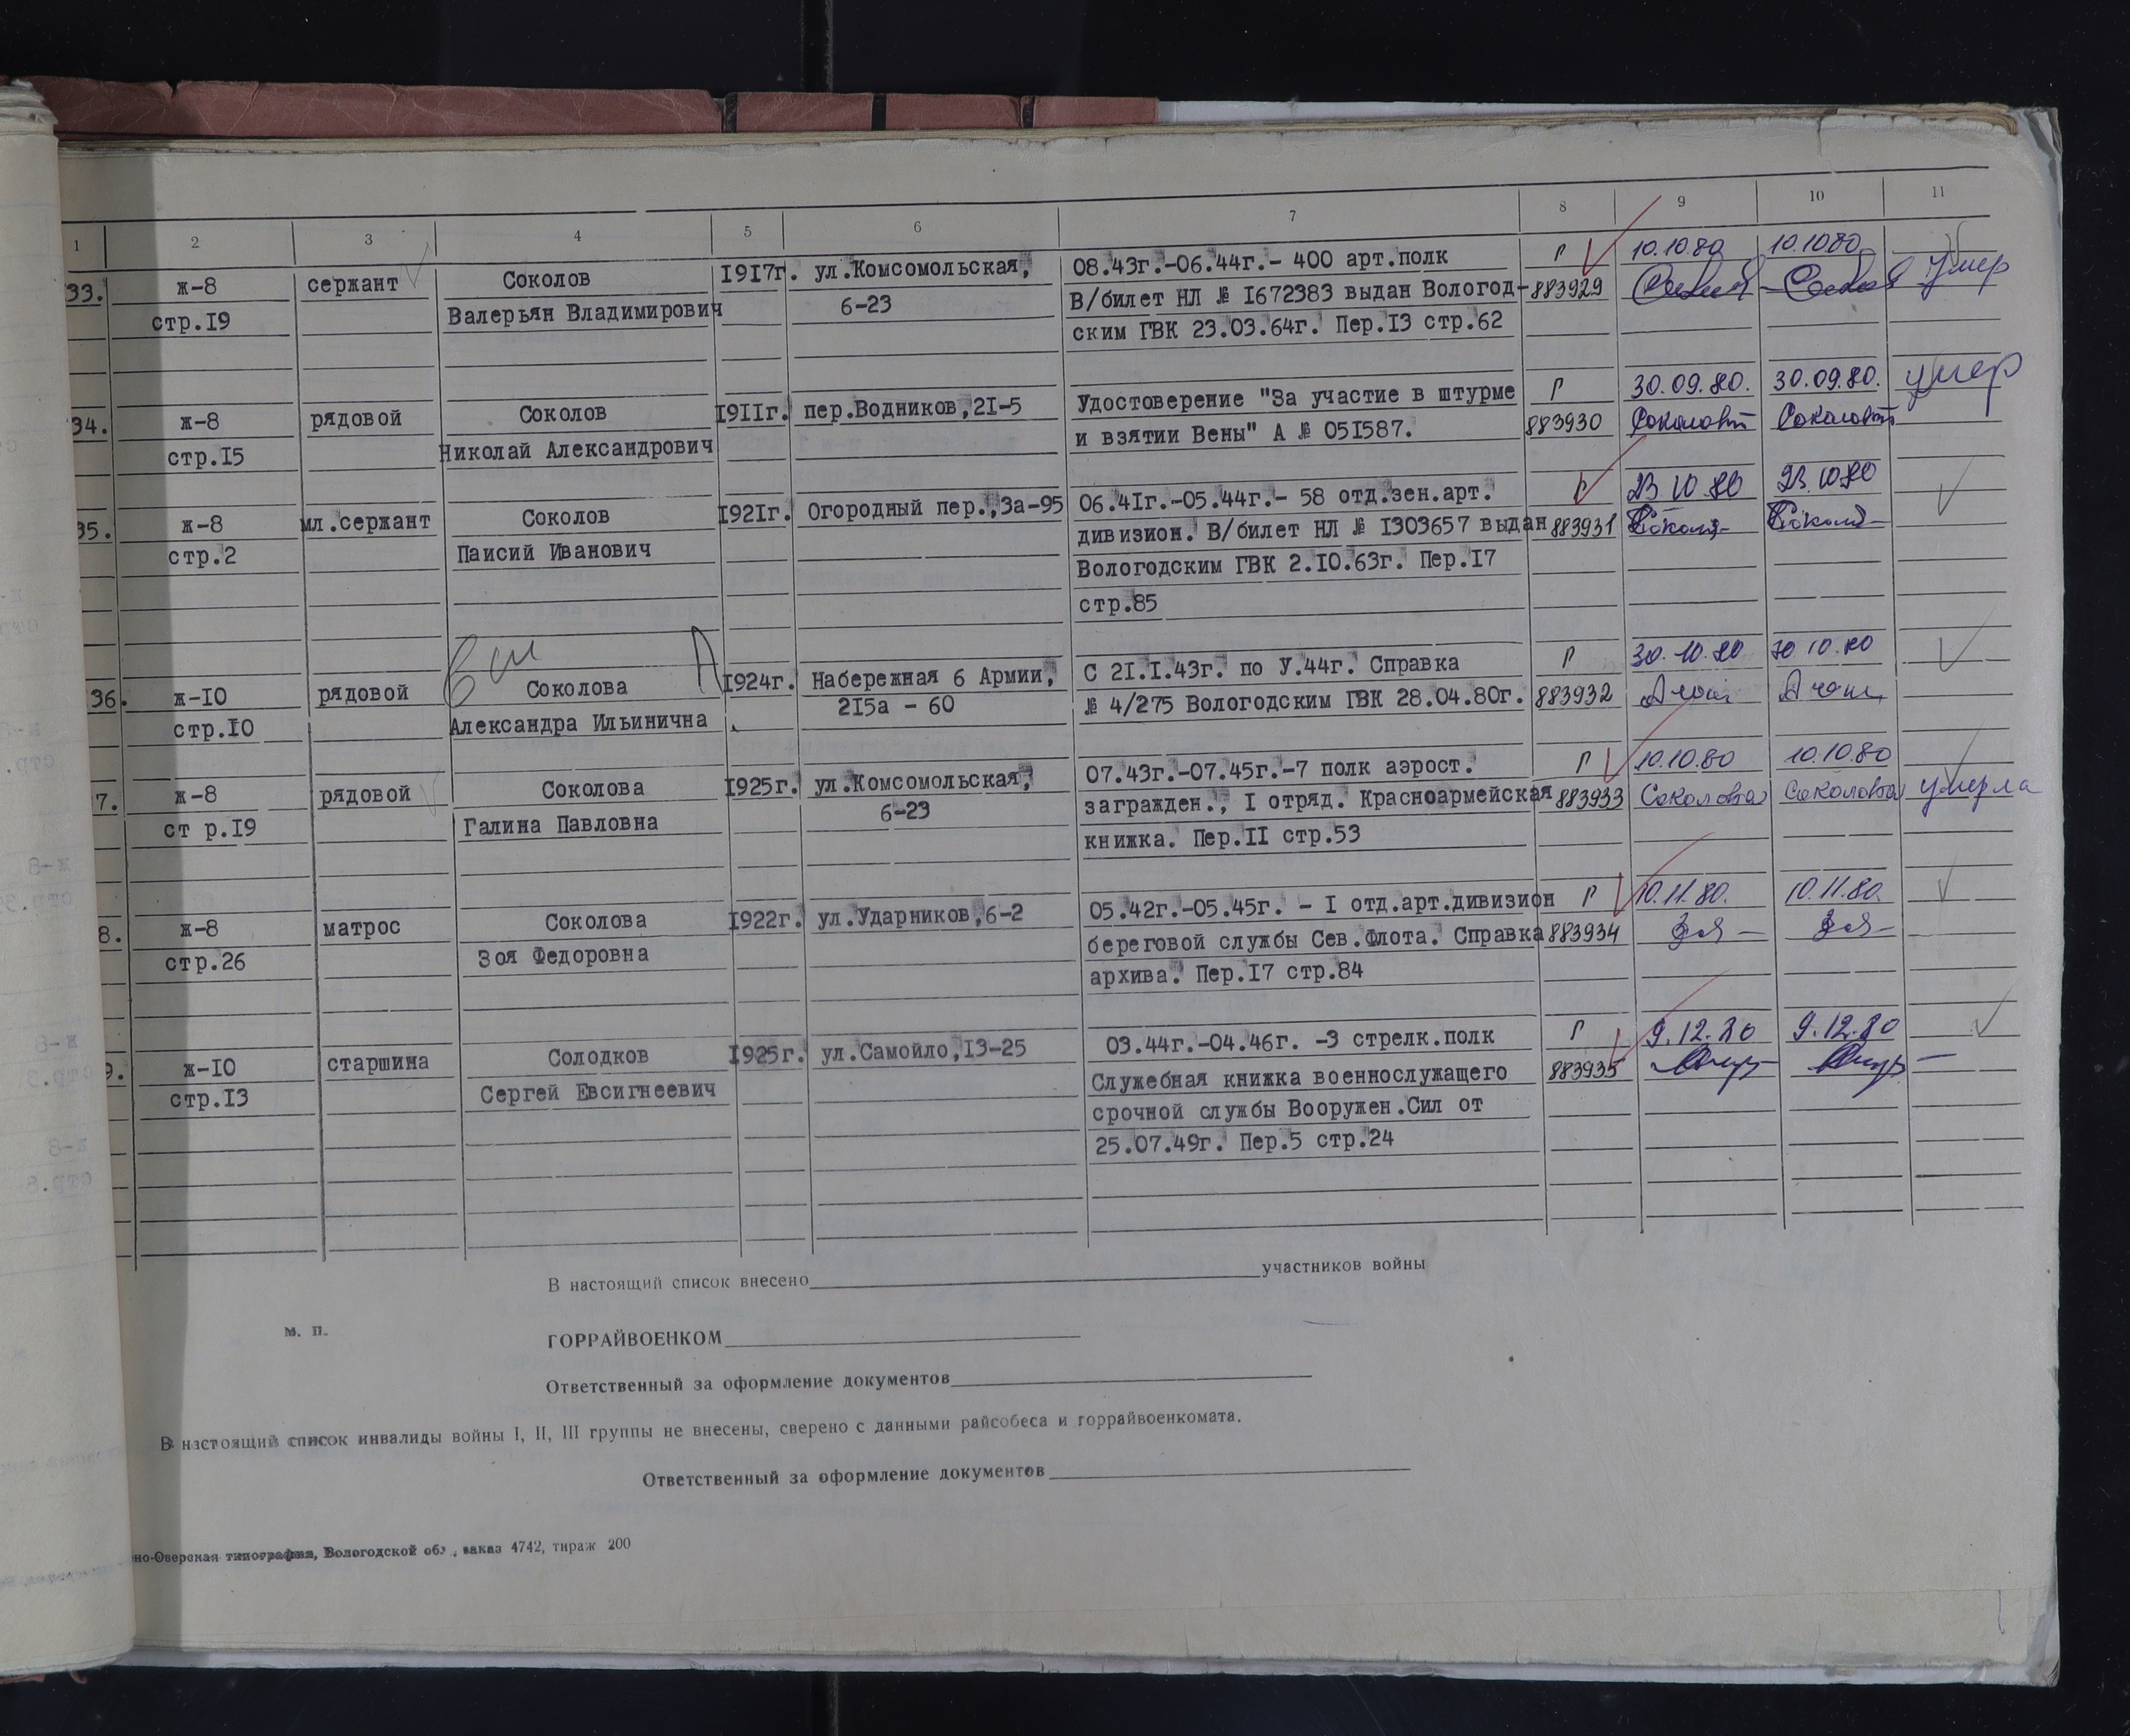 1 2 3 4 5 6 7 8 9 10 11
33. ж-8 сержант Соколов 1917г. ул.Комсомольская, 08.43г.-06.44г.- 400 арт.полк Р 10.10.80 10.10.80 умер
стр.19 Валерьян Владимирович 6-23 В/билет НЛ № 1672383 выдан Вологод- 883929
ским ГВК 23.03.64г. Пер.13 стр.62
34. ж-8 рядовой Соколов 1911г. пер.Водников,21-5 Удостоверение "За участие в штурме Р 30.09.80. 30.09.80. умер
стр.15 Николай Александрович и взятии Вены" А № 051587. 883930
35. ж-8 мл.сержант Соколов 1921г. Огородный пер.,3а-95 06.41г.-05.44г.- 58 отд.зен.арт. Р 23 10 80 23.10.80
стр.2 Паисий Иванович дивизион. В/билет НЛ № 1303657 выдан 883931
Вологодским ГВК 2.10.63г. Пер.17
стр.85
36. ж-10 рядовой Соколова 1924г. Набережная 6 Армии, С 21.1.43г. по У.44г. Справка Р 30.10.80 30 10.80
стр.10 Александра Ильинична 215а - 60 № 4/275 Вологодским ГВК 28.04.80г. 883932
7. ж-8 рядовой Соколова 1925г. ул.Комсомольская, 07.43г.-07.45г.-7 полк аэрост. Р 10.10.80 10.10.80 умерла
ст р.19 Галина Павловна 6-23 загражден., I отряд. Красноармейская 883933 Соколова Соколова
книжка. Пер.II стр.53
8. ж-8 матрос Соколова 1922г. ул.Ударников,6-2 05.42г.-05.45г. - I отд.арт.дивизион Р 10.11.80. 10.11.80.
стр.26 Зоя Федоровна береговой службы Сев.Флота. Справка 883934
архива. Пер.17 стр.84
9. ж-10 старшина Солодков 1925г. ул.Самойло,13-25 03.44г.-04.46г. -3 стрелк.полк Р 9.12.80 9.12.80
стр.13 Сергей Евсигнеевич Служебная книжка военнослужащего 883935
срочной службы Вооружен.Сил от
25.07.49г. Пер.5 стр.24
В настоящий список внесено участников войны
м. п.
ГОРРАЙВОЕНКОМ
Ответственный за оформление документов
В настоящий список инвалиды войны I, II, III группы не внесены, сверено с данными райсобеса и горрайвоенкомата.
Ответственный за оформление документов
но-Озерская типография, Вологодской обл., заказ 4742, тираж 200